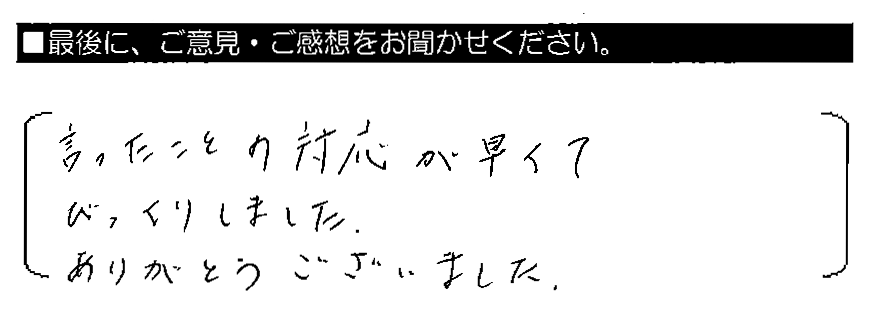 ■最後に、ご意見・ご感想をお聞かせください。
言ったことの対応が早くて
びっくりしました.
ありがとうございました.